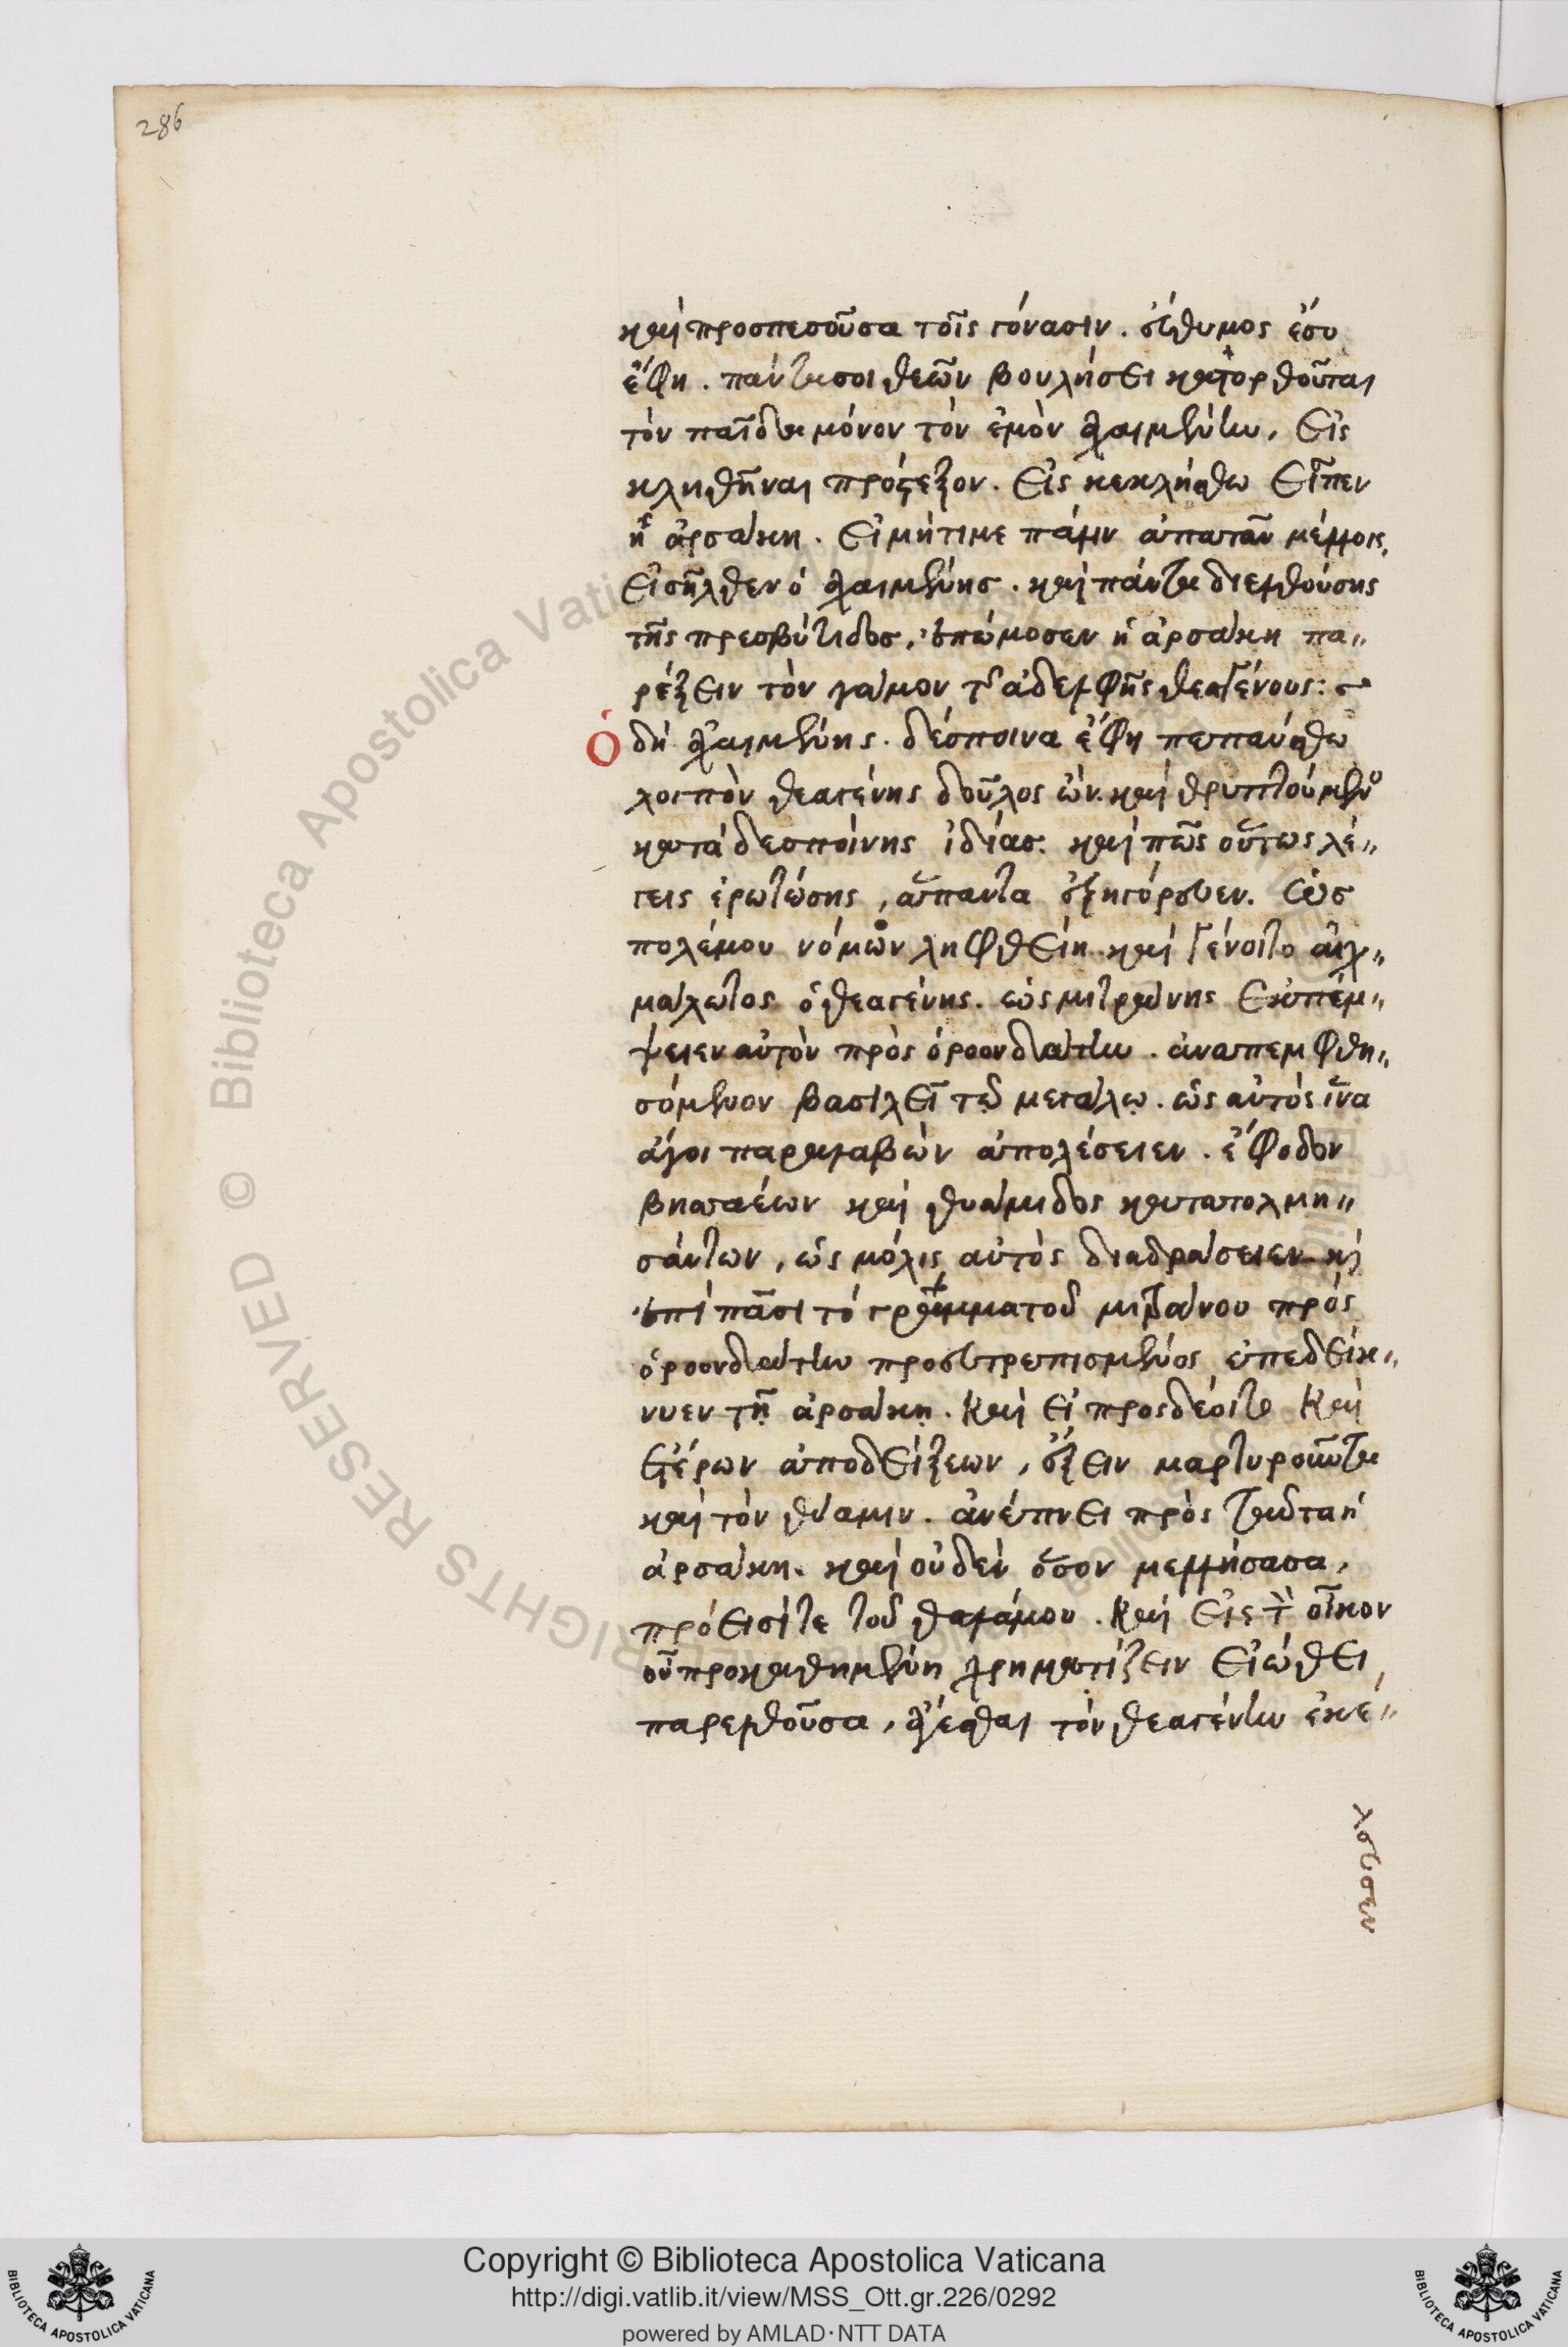 286
καὶ προσπεσοῦσα τοῖς γόνασιν. εὔθυμος ἔσο
ἔφη. πάντα σοι θεῶν βουλήσει κατορθοῦται
τὸν παῖδα μόνον τὸν ἐμὸν ἀχαιμένην, εἰς
κληθῆναι πρόσεξον. εἰς κεκλήσθω εἶπεν
ἡ ἀρσάκη. εἰ μήτι με πάλιν ἀπατᾶν μέλλοις,
εἰσῆλθεν ὁ ἀχαιμένης. καὶ πάντα διελθούσης
τῆς πρεσβύτιδος, ἐπώμοσεν ἡ ἀρσάκη πα〃
ρέξειν τὸν γάμον τῆς ἀδελφῆς θεαγένους:
Ὁ δὴ ἀχαιμένης. δέσποινα ἔφη πεπαύσθω
λοιπὸν θεαγένης δοῦλος ὢν. καὶ θρυπτόμενος
κατὰ δεσποίνης ἰδίας. καὶ πῶς οὕτως λέ〃
γεις ἐρωτώσης, ἅπαντα ἐξηγόρευεν. ὡς
πολέμου νόμῳ ληφθείη. καὶ γένοιτο αἰχ〃
μάλωτος ὁ θεαγένης. ὡς μιτράνης ἐκπέμ〃
ψειεν αὐτὸν πρὸς ὀροονδάτην. ἀναπεμφθη〃
σόμενον βασιλεῖ τῷ μεγάλῳ. ὡς αὐτὸς ἵνα
ἄγοι παραλαβὼν ἀπολέσειεν. ἔφοδον
βησσαέων καὶ θυάμιδος κατατολμη〃
σάντων, ὡς μόλις αὐτὸς διαδράσειεν κὶ
ἐπὶ πᾶσι τὸ γράμμα τοῦ μιτράνου πρὸς
ὀροονδάτην προευτρεπισμένος ἐπεδείκ〃
νυεν τῇ ἀρσάκῃ. καὶ εἰ προσδέοιτο καὶ
ἑτέρων ἀποδείξεων, ἕξειν μαρτυροῦντα
καὶ τὸν θύαμιν. ἀνέπνει πρὸς ταῦτα ἡ
ἀρσάκη. καὶ οὐδὲν ὅσον μελλήσασα,
πρόεισί τε τοῦ θαλάμου. καὶ εἰς τὸν οἶκον
οὗ προκαθημένη χρηματίζειν εἰώθει,
παρελθοῦσα, ἄγεσθαι τὸν θεαγένην ἐκέ〃
λευσεν
Copyright © Biblioteca Apostolica Vaticana
http://digi.vatlib.it/view/MSS_Ott.gr.226/0292
powered by AMLAD·NTT DATA